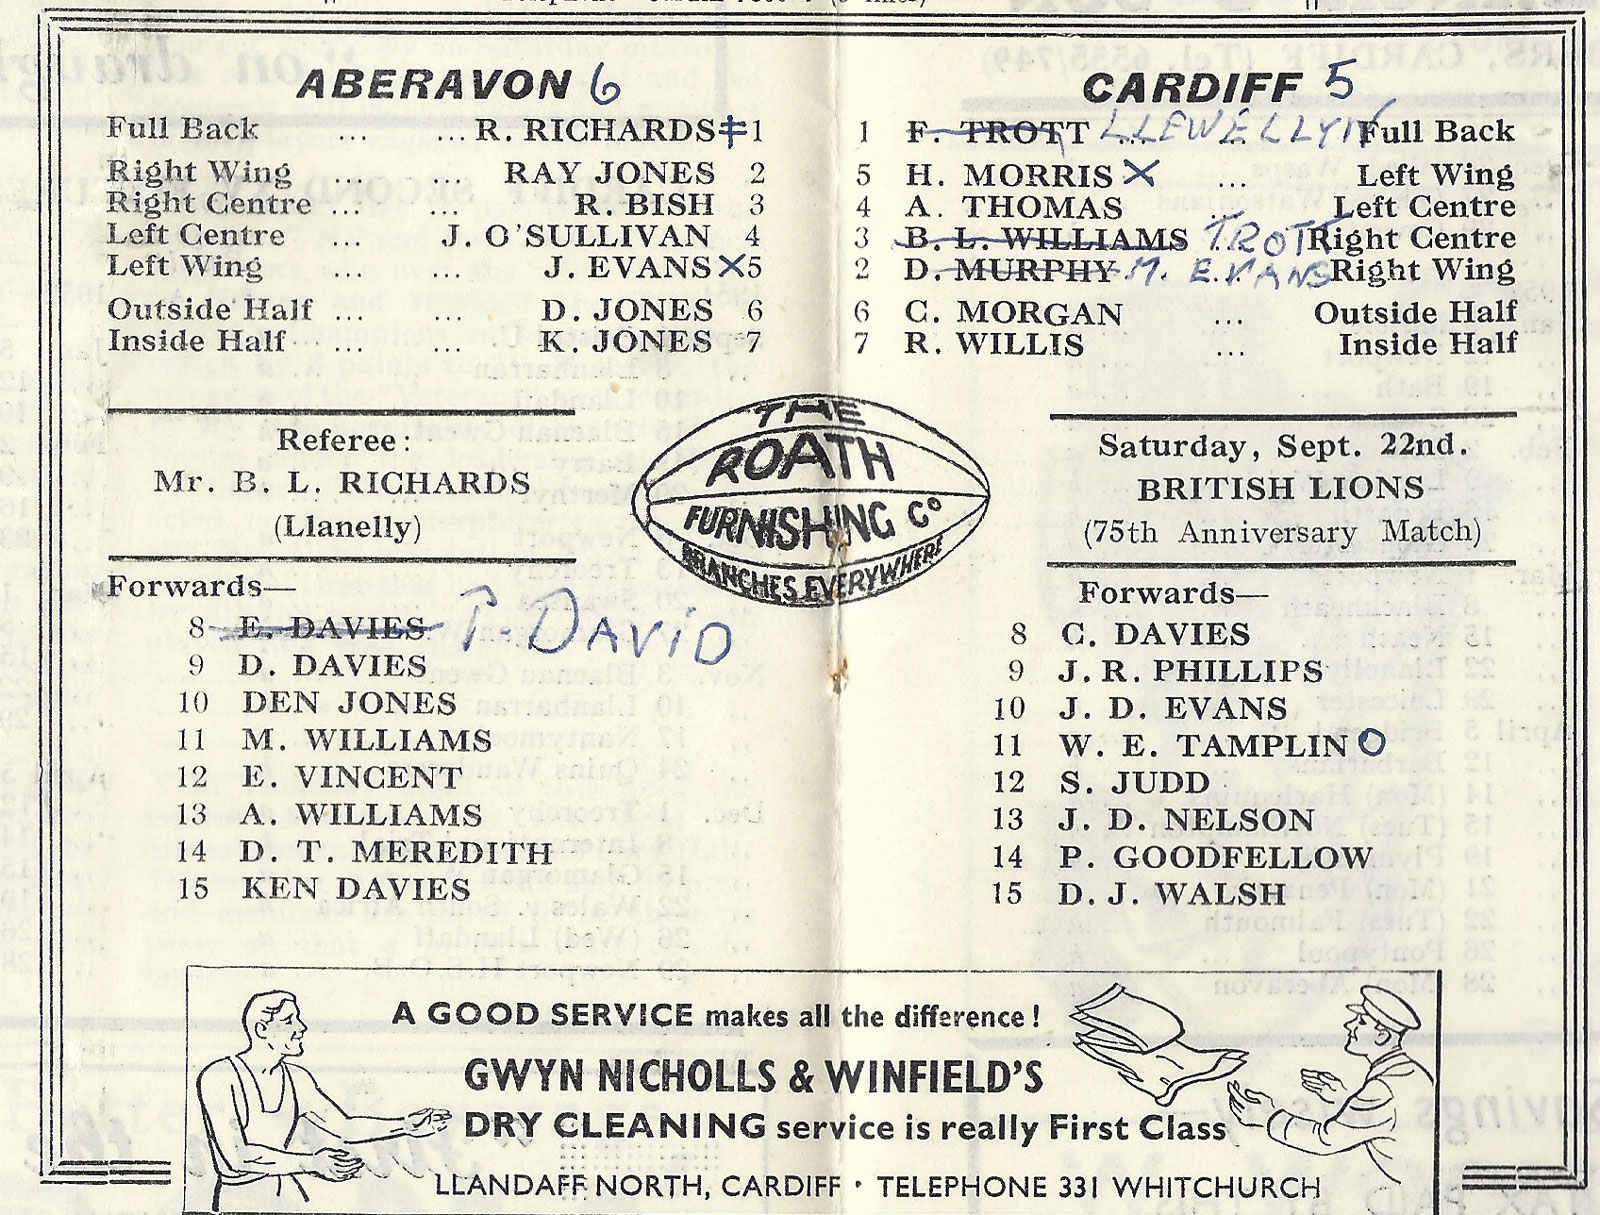 ABERAVON 6
Full Back ... ... R. RICHARDS ‡ 1
Right Wing ... ... RAY JONES 2
Right Centre ... ... R. BISH 3
Left Centre ... J. O'SULLIVAN 4
Left Wing ... ... J. EVANS X 5
Outside Half ... ... D. JONES 6
Inside Half ... ... K. JONES 7
CARDIFF 5
1 F. TROTT LLEWELLYN ... Full Back
5 H. MORRIS X ... Left Wing
4 A. THOMAS ... Left Centre
3 B. L. WILLIAMS TROTT Right Centre
2 D. MURPHY M. EVANS ... Right Wing
6 C. MORGAN ... Outside Half
7 R. WILLIS ... Inside Half
Referee:
Mr. B. L. RICHARDS
(Llanelly)
THE
ROATH
FURNISHING Co
BRANCHES EVERYWHERE
Saturday, Sept. 22nd.
BRITISH LIONS
(75th Anniversary Match)
Forwards—
8 E. DAVIES P DAViD
9 D. DAVIES
10 DEN JONES
11 M. WILLIAMS
12 E. VINCENT
13 A. WILLIAMS
14 D. T. MEREDITH
15 KEN DAVIES
Forwards—
8 C. DAVIES
9 J. R. PHILLIPS
10 J. D. EVANS
11 W. E. TAMPLIN O
12 S. JUDD
13 J. D. NELSON
14 P. GOODFELLOW
15 D. J. WALSH
A GOOD SERVICE makes all the difference!
GWYN NICHOLLS & WINFIELD'S
DRY CLEANING service is really First Class
LLANDAFF NORTH, CARDIFF · TELEPHONE 331 WHITCHURCH